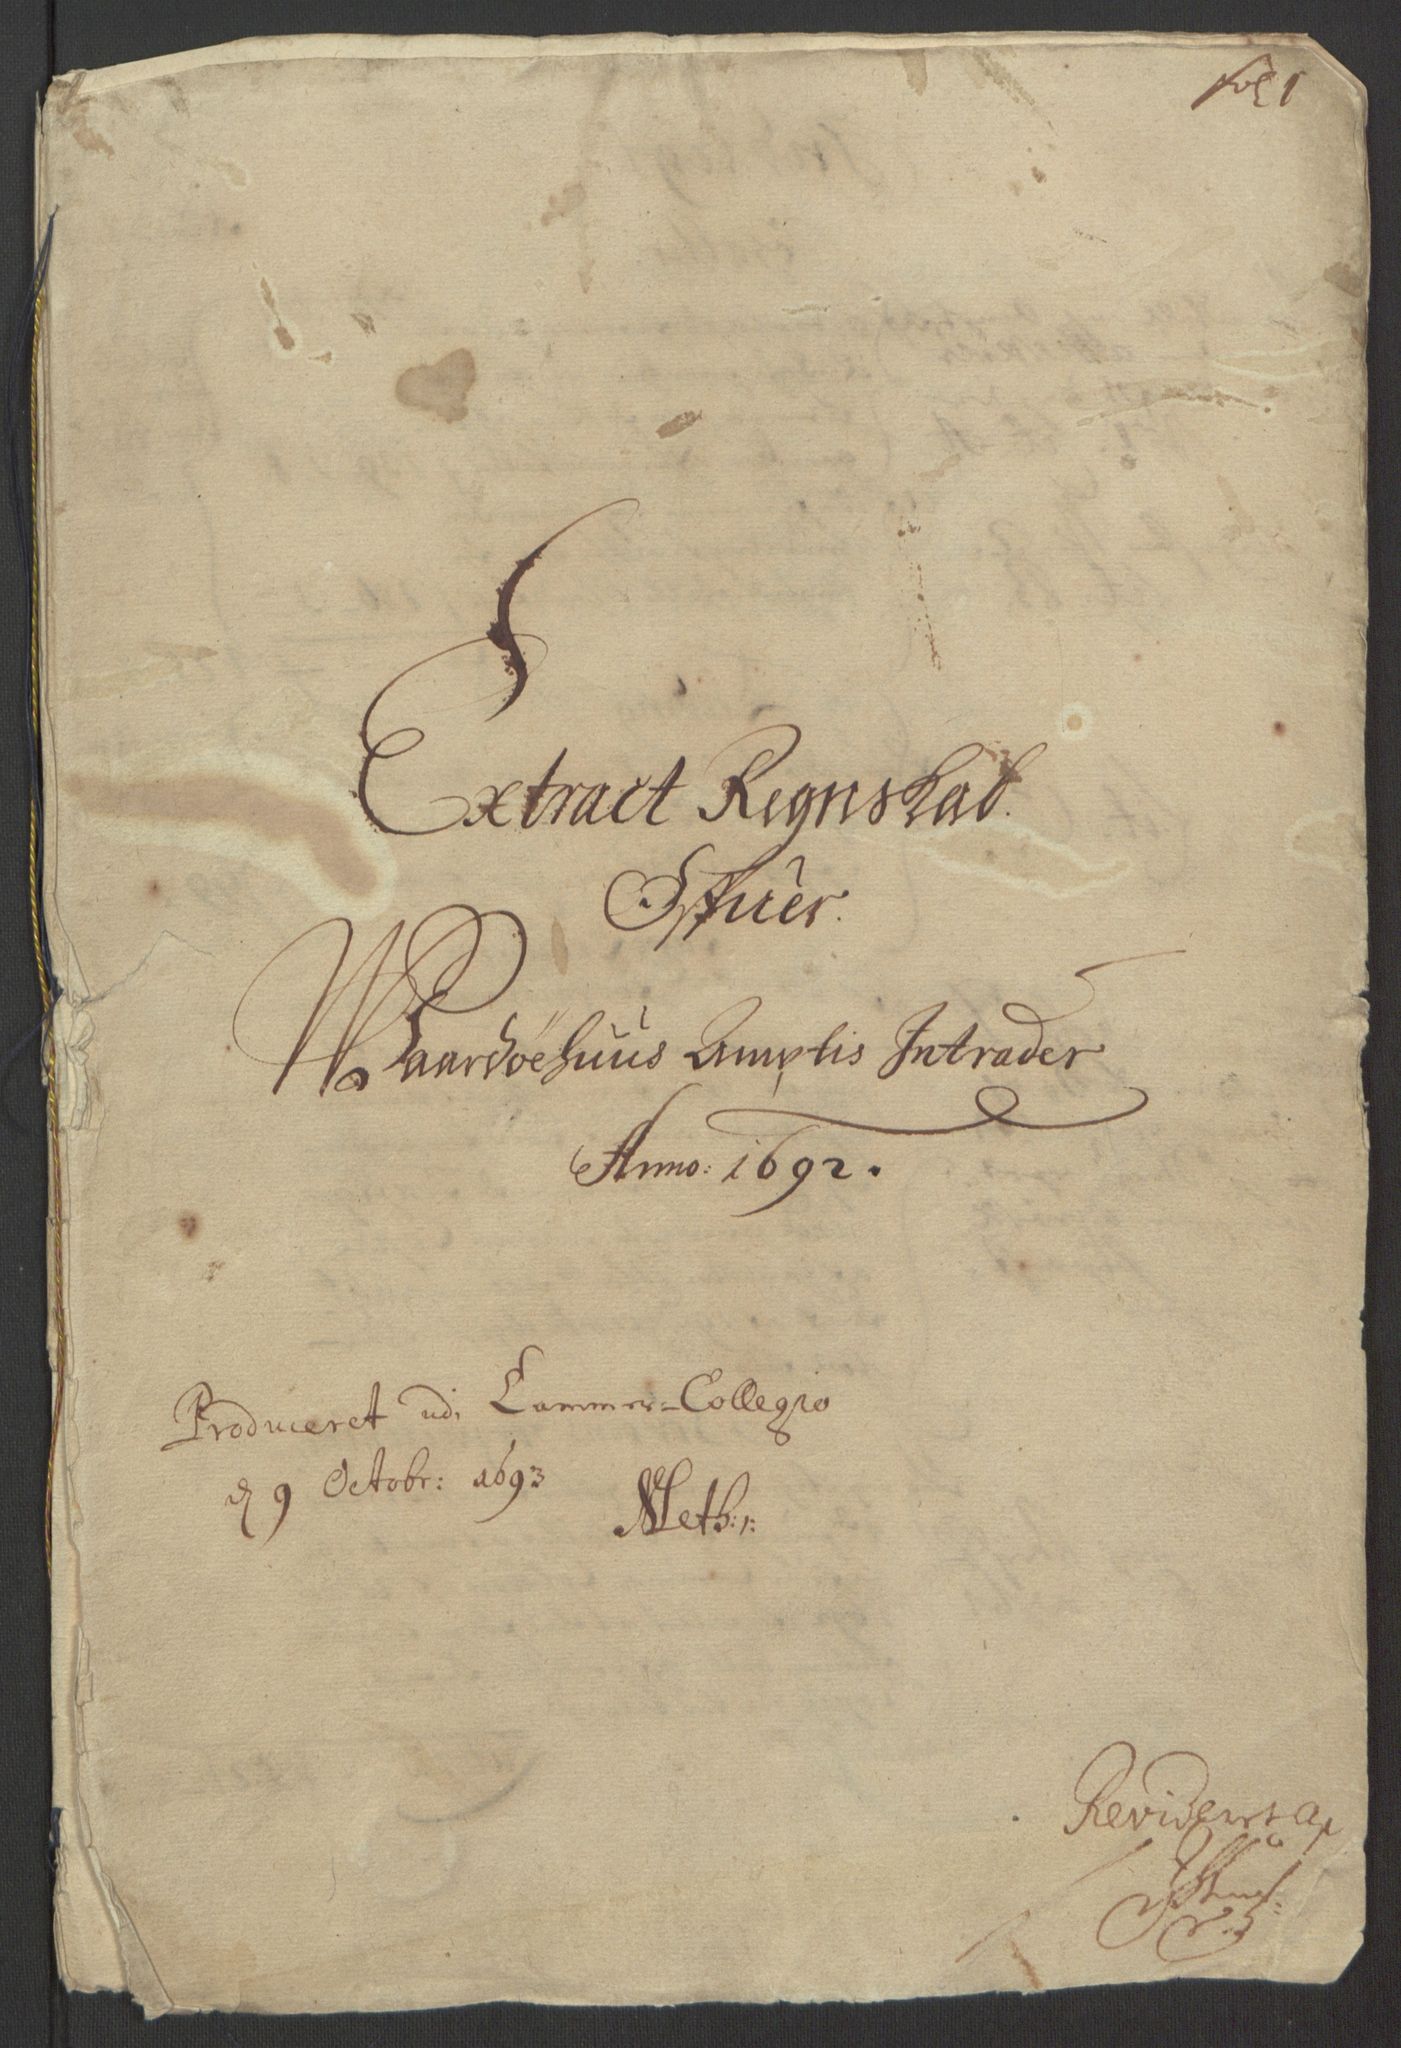 Fol 1
Extract Regnskab.
Offuer
Waardöehuus Ambtis Intrader
Anno: 1692.
Produceret udj Cammer-Collegio
d 9 Octobr: 1693
Reviderit af